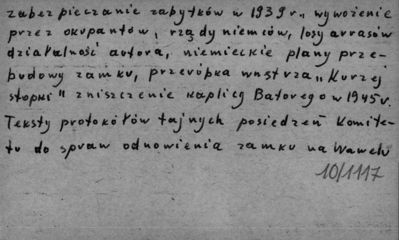 zabezpieczanie zabytków w 1939 r., wywożenie
przez okupantów, rządy niemców, losy arrasów
działalność autora, niemieckie plany prze-
budowy zamku, przeróbka wnętrza „Kurzej
stopki" zniszczenie kaplicy Batorego w 1945 r.
Teksty protokółów tajnych posiedzeń Komite-
tu do spraw odnowienia zamku na Wawelu
10/1117